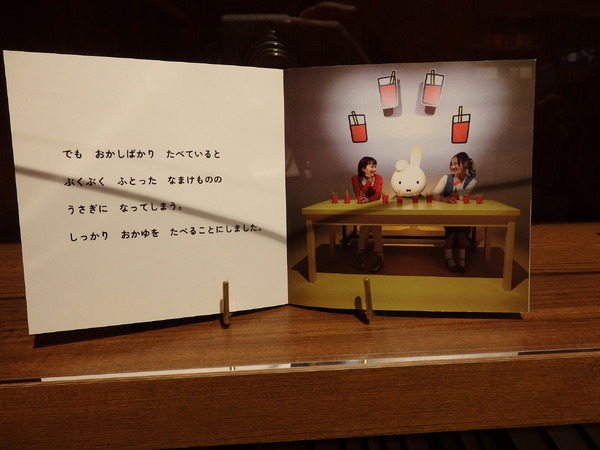 でも　おかしばかり　たべていると
ぶくぶく　ふとった　なまけものの
うさぎに　なってしまう。
しっかり　おかゆを　たべることにしました。